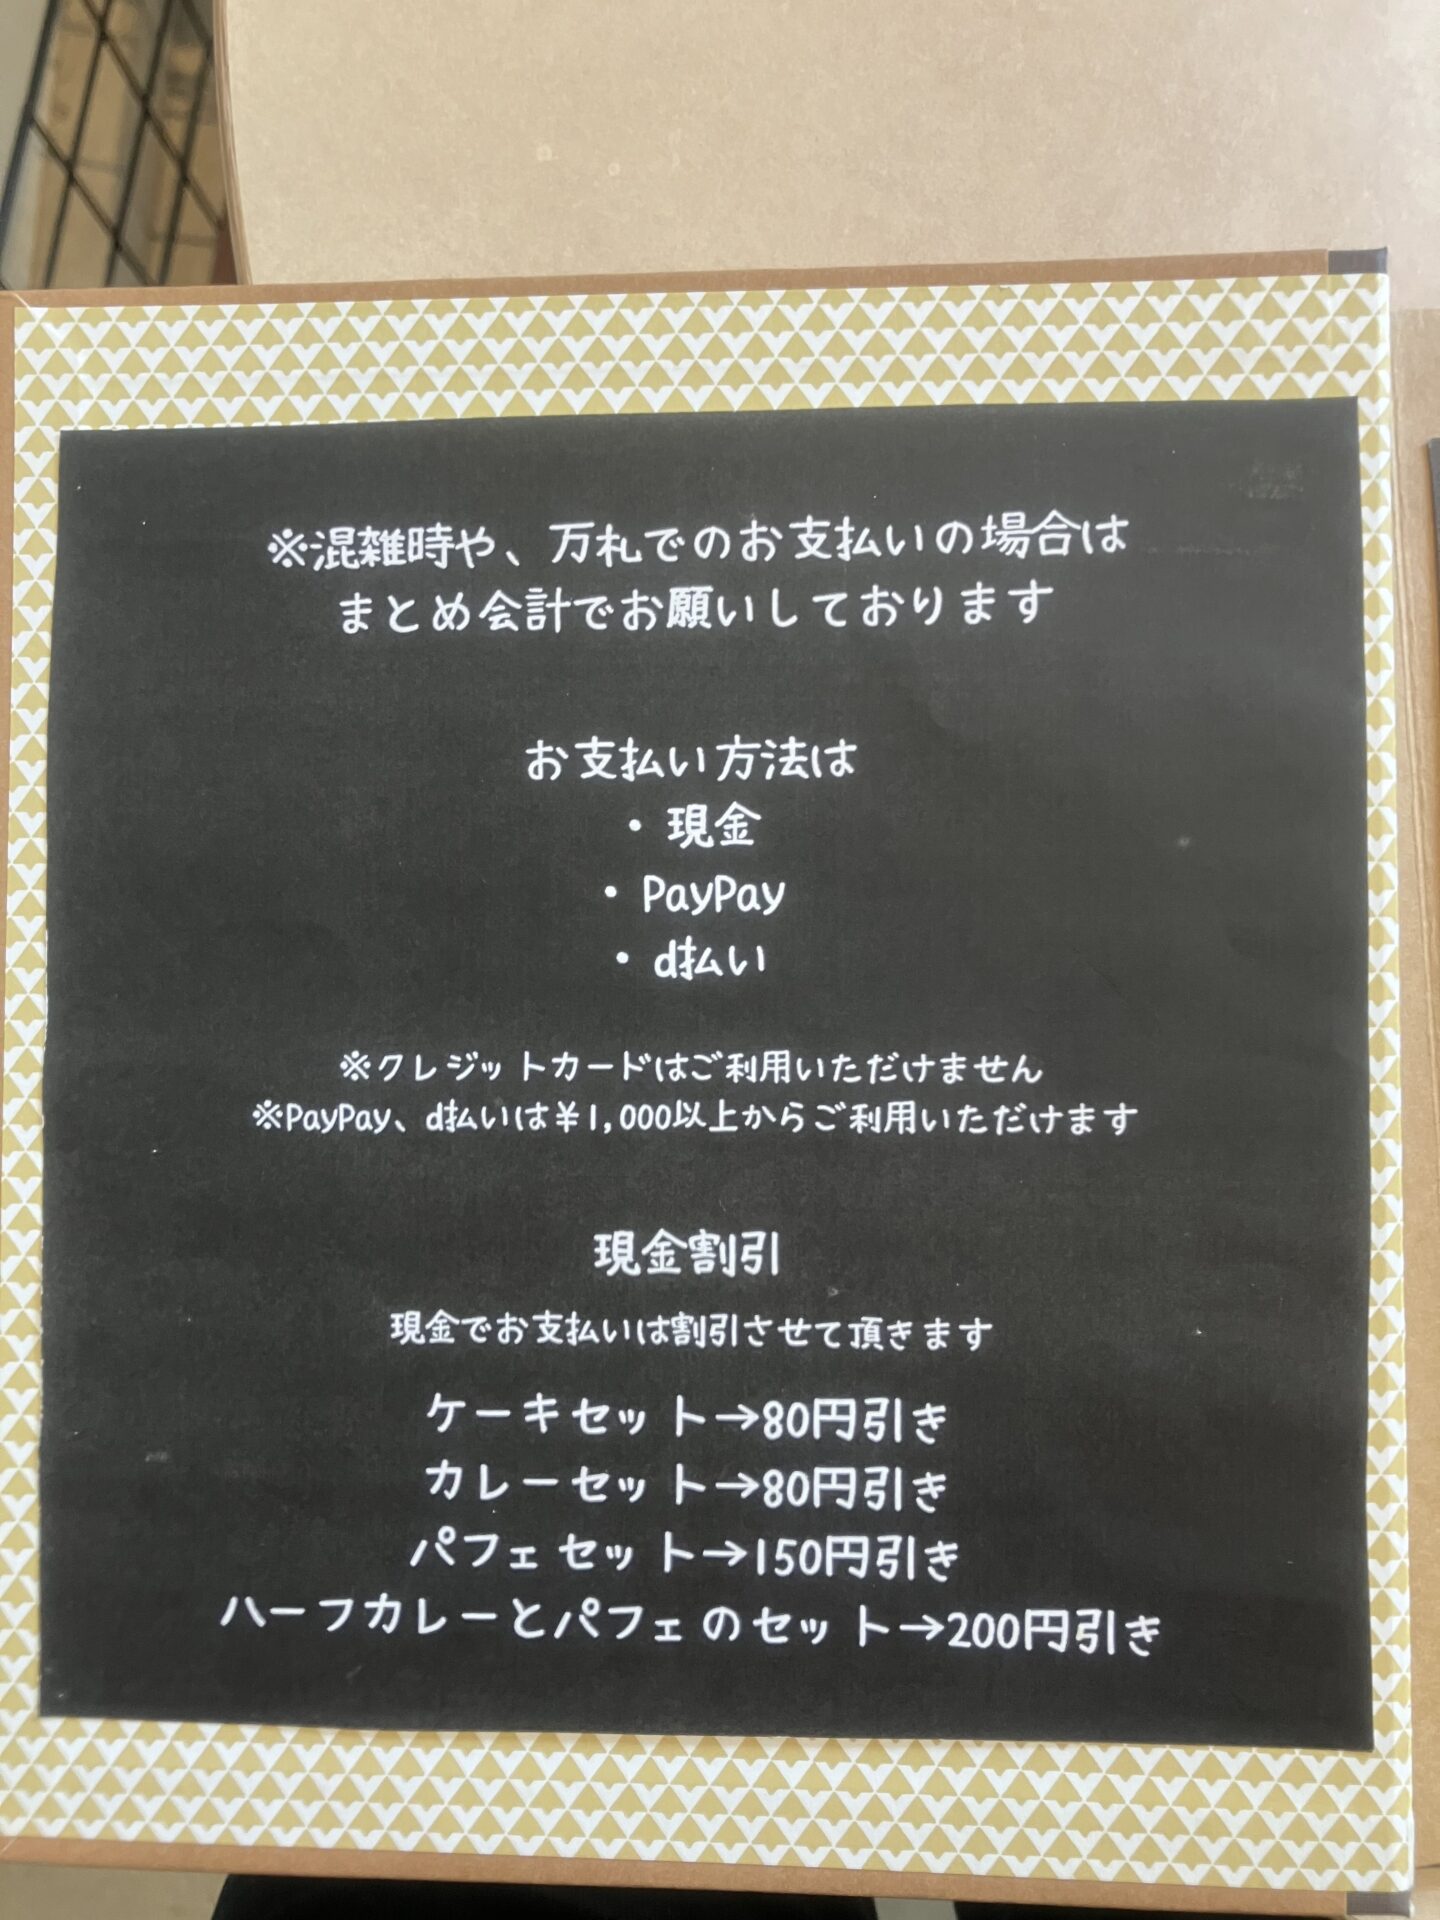 ※混雑時や、万札でのお支払いの場合は
まとめ会計でお願いしております
お支払い方法は
・現金
・PayPay
・d払い
※クレジットカードはご利用いただけません
※PayPay、d払いは¥1,000以上からご利用いただけます
現金割引
現金でお支払いは割引させて頂きます
ケーキセット→80円引き
カレーセット→80円引き
パフェセット→150円引き
ハーフカレーとパフェのセット→200円引き